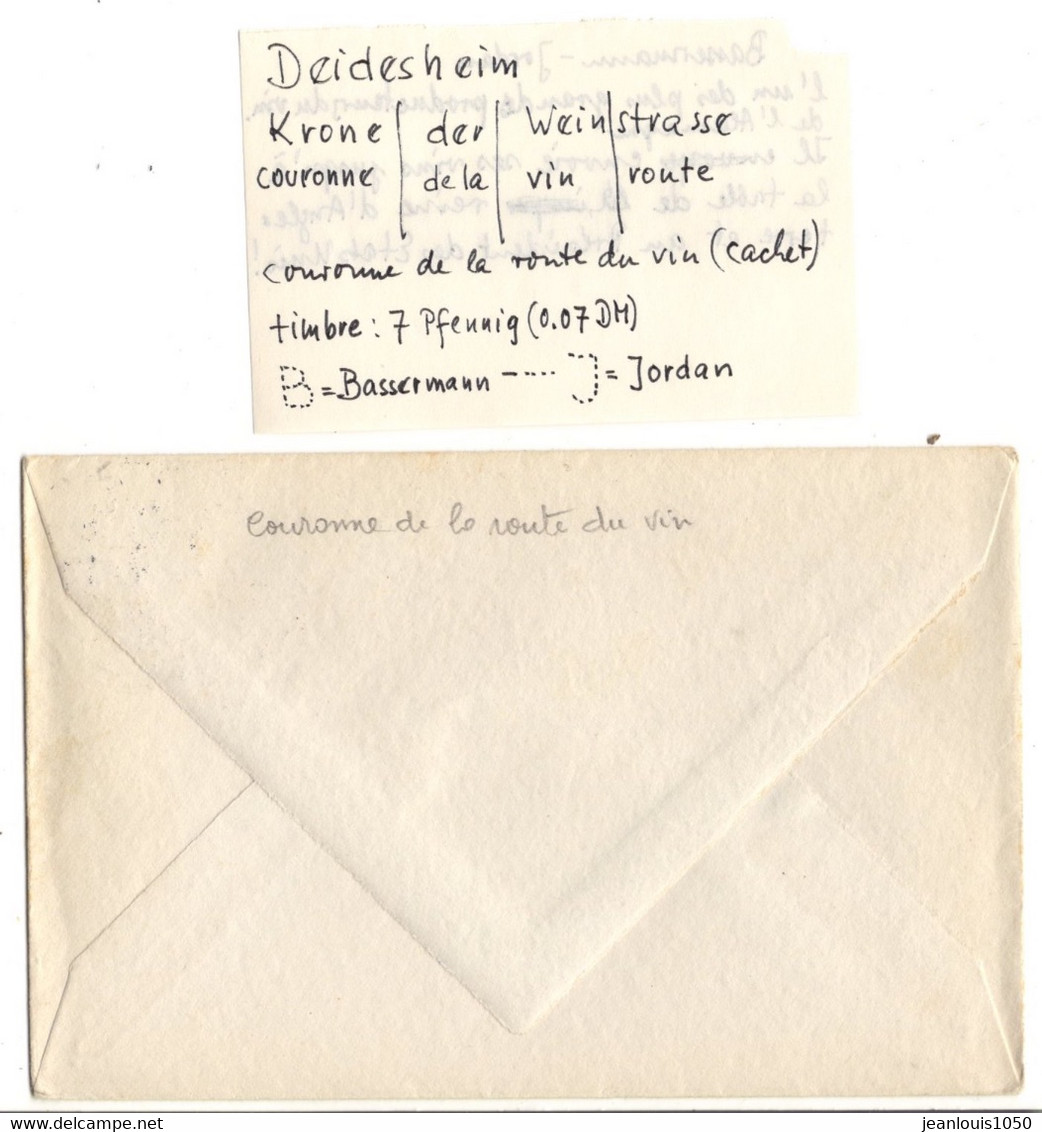 Deidesheim
Krone | der | Wein | strasse
couronne | de la | vin | route
couronne de la route du vin (cachet)
timbre : 7 Pfennig (0.07 DM)
B = Bassermann ----- J = Jordan
Bassermann - Jordan
l'un des plus grands producteurs du vin
de l'
Il envoie ses vins jusqu'à
la table de la reine d'Angle-
terre et au Président des Etats Unis!
couronne de la route du vin
jeanlouis1050